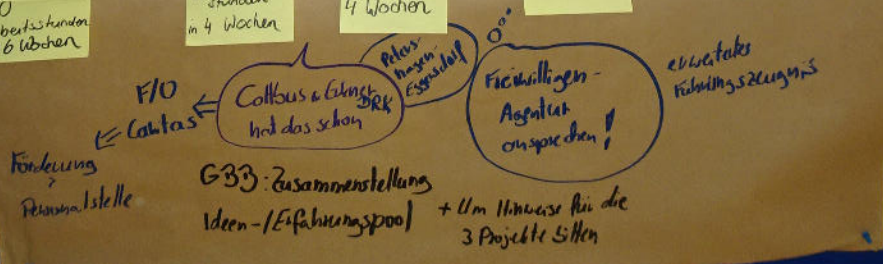 beitsstunden
6 Wochen
in 4 Wochen
4 Wochen
F/O
Caritas
Förderung
?
Personalstelle
Cottbus &
hat das schon
DRK
Peters-
hagen-
Eggersdorf
Freiwilligen-
Agentur
ansprechen!
erweitertes
Führungszeugnis
GBB: Zusammenstellung
Ideen-/Erfahrungspool
+ Um Hinweise für die
3 Projekte bitten